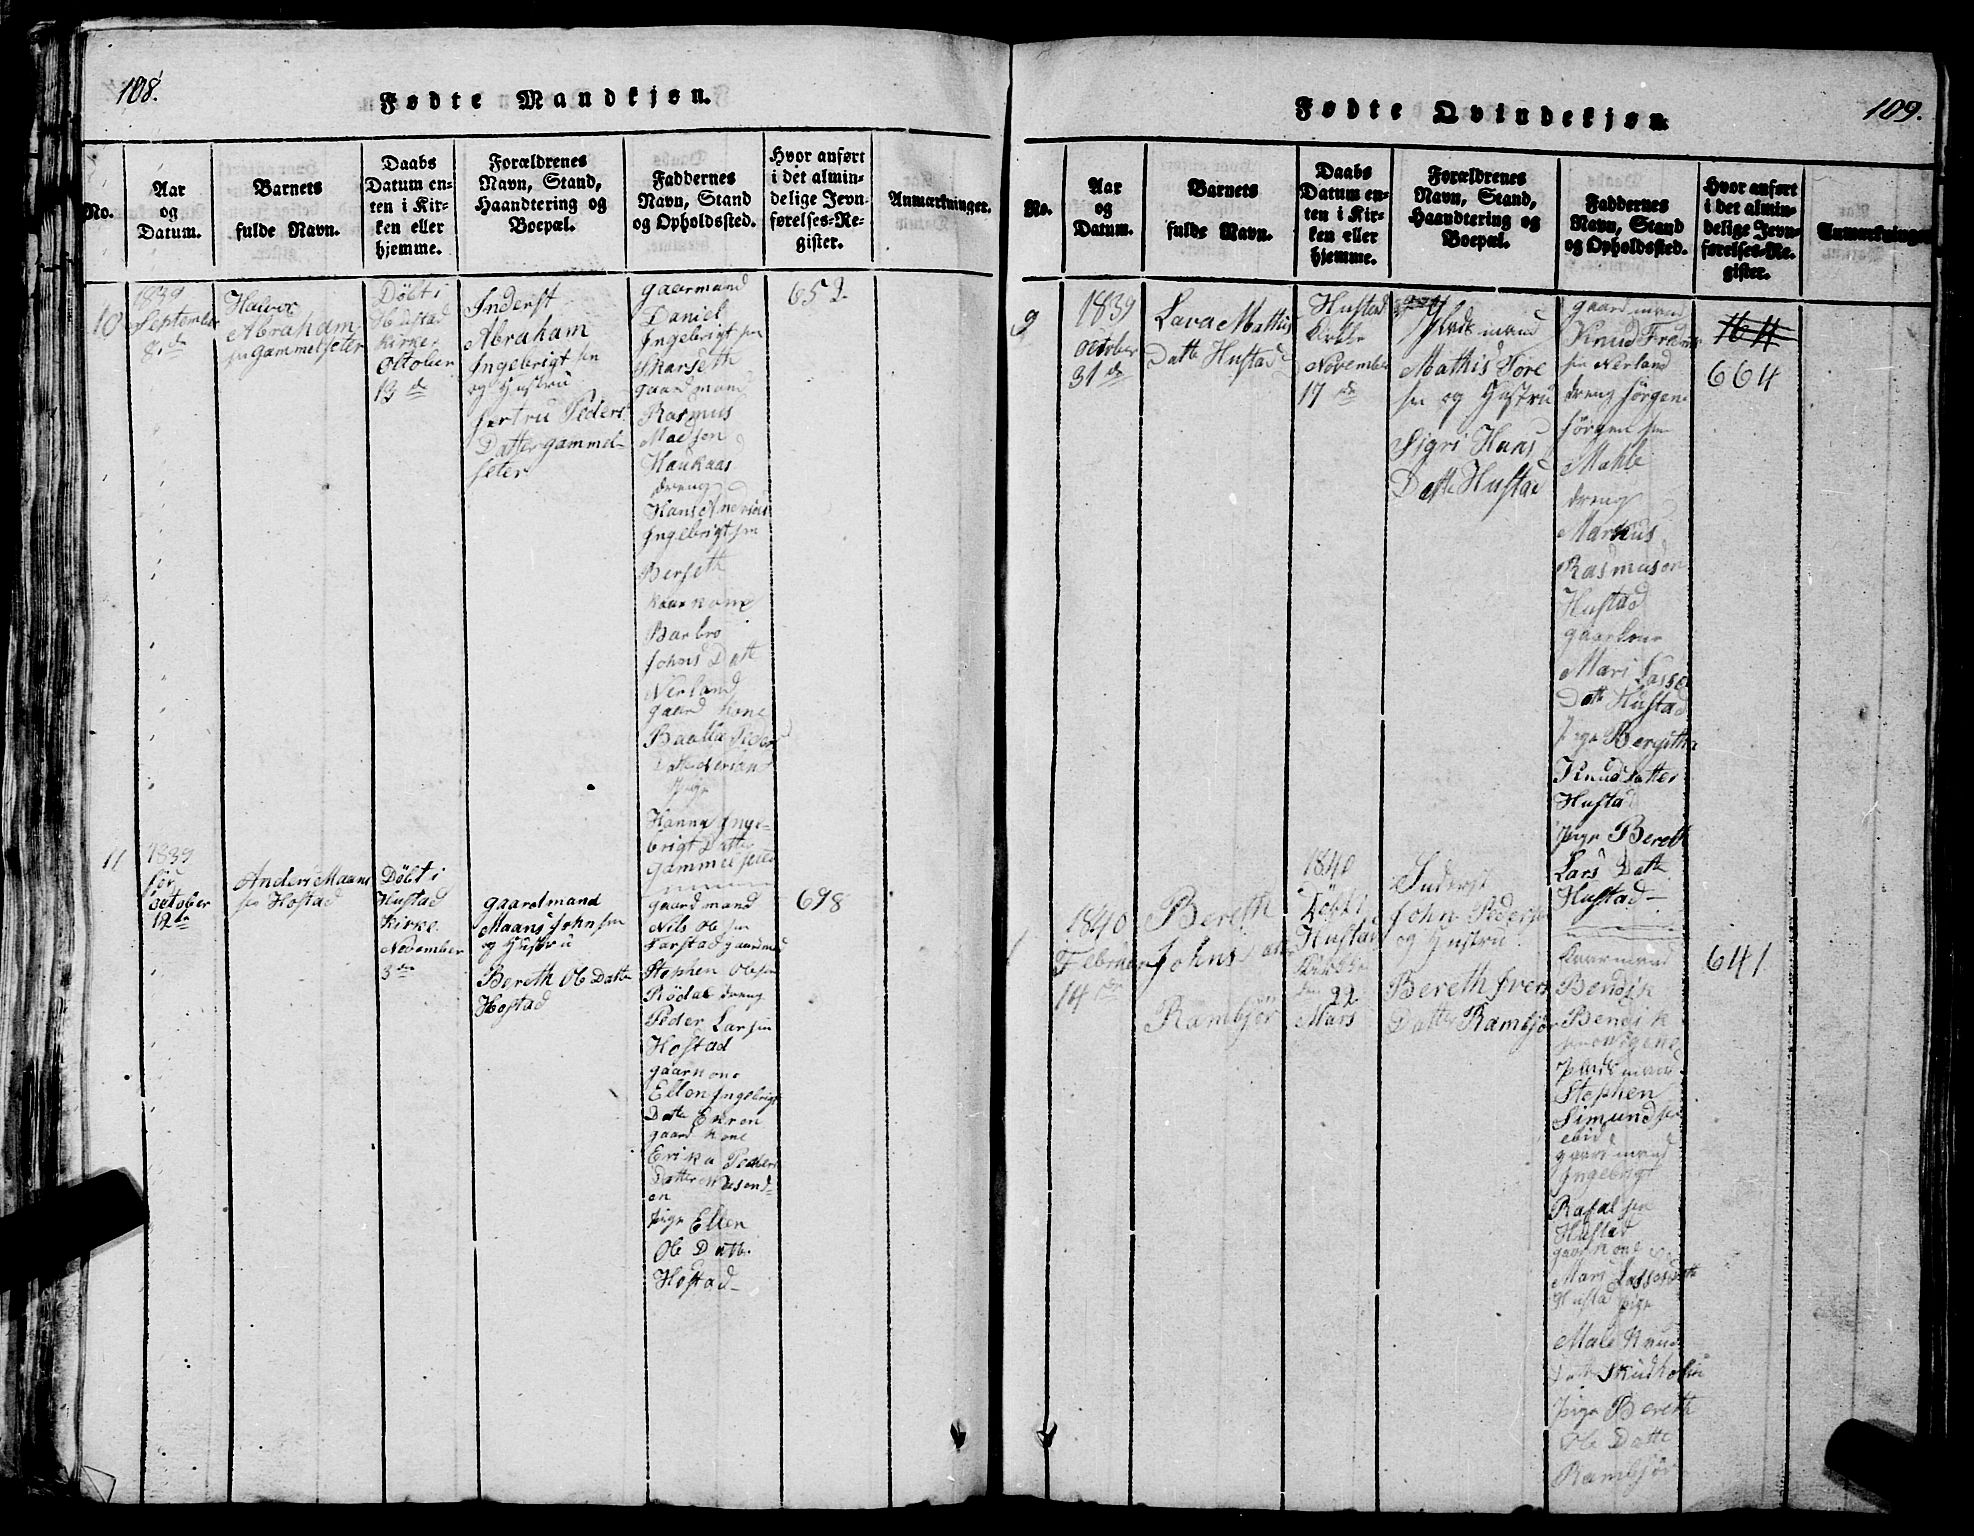 108.
Fødte Mandkjøn.
No.
Aar
og
Datum.
Barnets
fulde Navn.
Daabs
Datum en-
ten i Kir-
ken eller
hjemme.
Forældrenes
Navn, Stand,
Haandtering og
Boepæl.
Faddernes
Navn, Stand
og Opholdssted.
Hvor anført
i det almin-
delige Jevn-
førelses-Re-
gister.
Anmærkninger.
10
1839
September
8de
Halvor
Abraham
sen Gammelseter
Døbt i
Hustad
Kirke
Octtober
13 de
Inderst
Abraham
Ingebrigt sen
og Hustru
Peders
Datter Gammel-
seter
gaarmand
Daniel
Ingebrigt sen
Skarseth
gaardmand
Rasmus
Haukaas
dreng
Ingebrigt sen
Berseth
Barbro
Johns Datt
Nerland
gaard kone
Peders
Pige
Hanna Inge-
brigt Datter
Gammelseter
652
11
1839
october
12te
Anders Maans
sen Hostad
Døbt i
Hustad
Kirke
November
3die
gaardmand
Maans John sen
og Hustru
Bereth Ole Datte
Hostad
gaardmand
Nils Ole sen
Farstad gaardmand
Stephen Olesen
Rødal dreng
Peder Larsen
Hostad
gaarkone
Ellen Ingebrigt
Datte Ekren
gaard kone
Erika Peders
Datter
pige Ellen
Ole Datte
Hostad
698
109.
Fødte Qvindekjøn.
No.
Aar
og
Datum.
Barnets
fulde Navn.
Daabs
Datum en-
ten i Kir-
ken eller
hjemme.
Forældrenes
Navn, Stand,
Haandtering og
Boepæl.
Faddernes
Navn, Stand
og Opholdssted.
Hvor anført
i det almin-
delige Jevn-
førelses-Re-
gister.
Anmærkninger
9
1839
October
31 de
Lava Mathis
Datte Hustad
Hustad
Kirke
November
17 de
Plads mand
Mathis Tore
sen og Hustru
Sigri Hans
Datte Hustad
gaardmand
Knud
sen Nerland
dreng Jørgen
Jørgen sen
Male
dreng
Markus
Rasmusen
Hustad
gaarkone
Mari Lasse
Datte Hustad
pige Bergitha
Knud Datter
Hustad
pige Bereth
Lars Datte
Hustad
664
1840
Februar
14 de
Bereth
Johns Datte
Rambjør
1840
Døbt i
Hustad
Kirke
den 22
Mars
Inderst
John Peder sen
og Hustru
Bereth Ivers
Datter Rambjør
Bendik
Bendik
Plads mand
Stephen
Simund sen
ebid
gaardmand
Ingebrigt
sen
Hustad
gaarkone
Mari Lasse Datte
Hustad pige
Male Knud
pige Bereth
Ole Datte
Rambjør
641